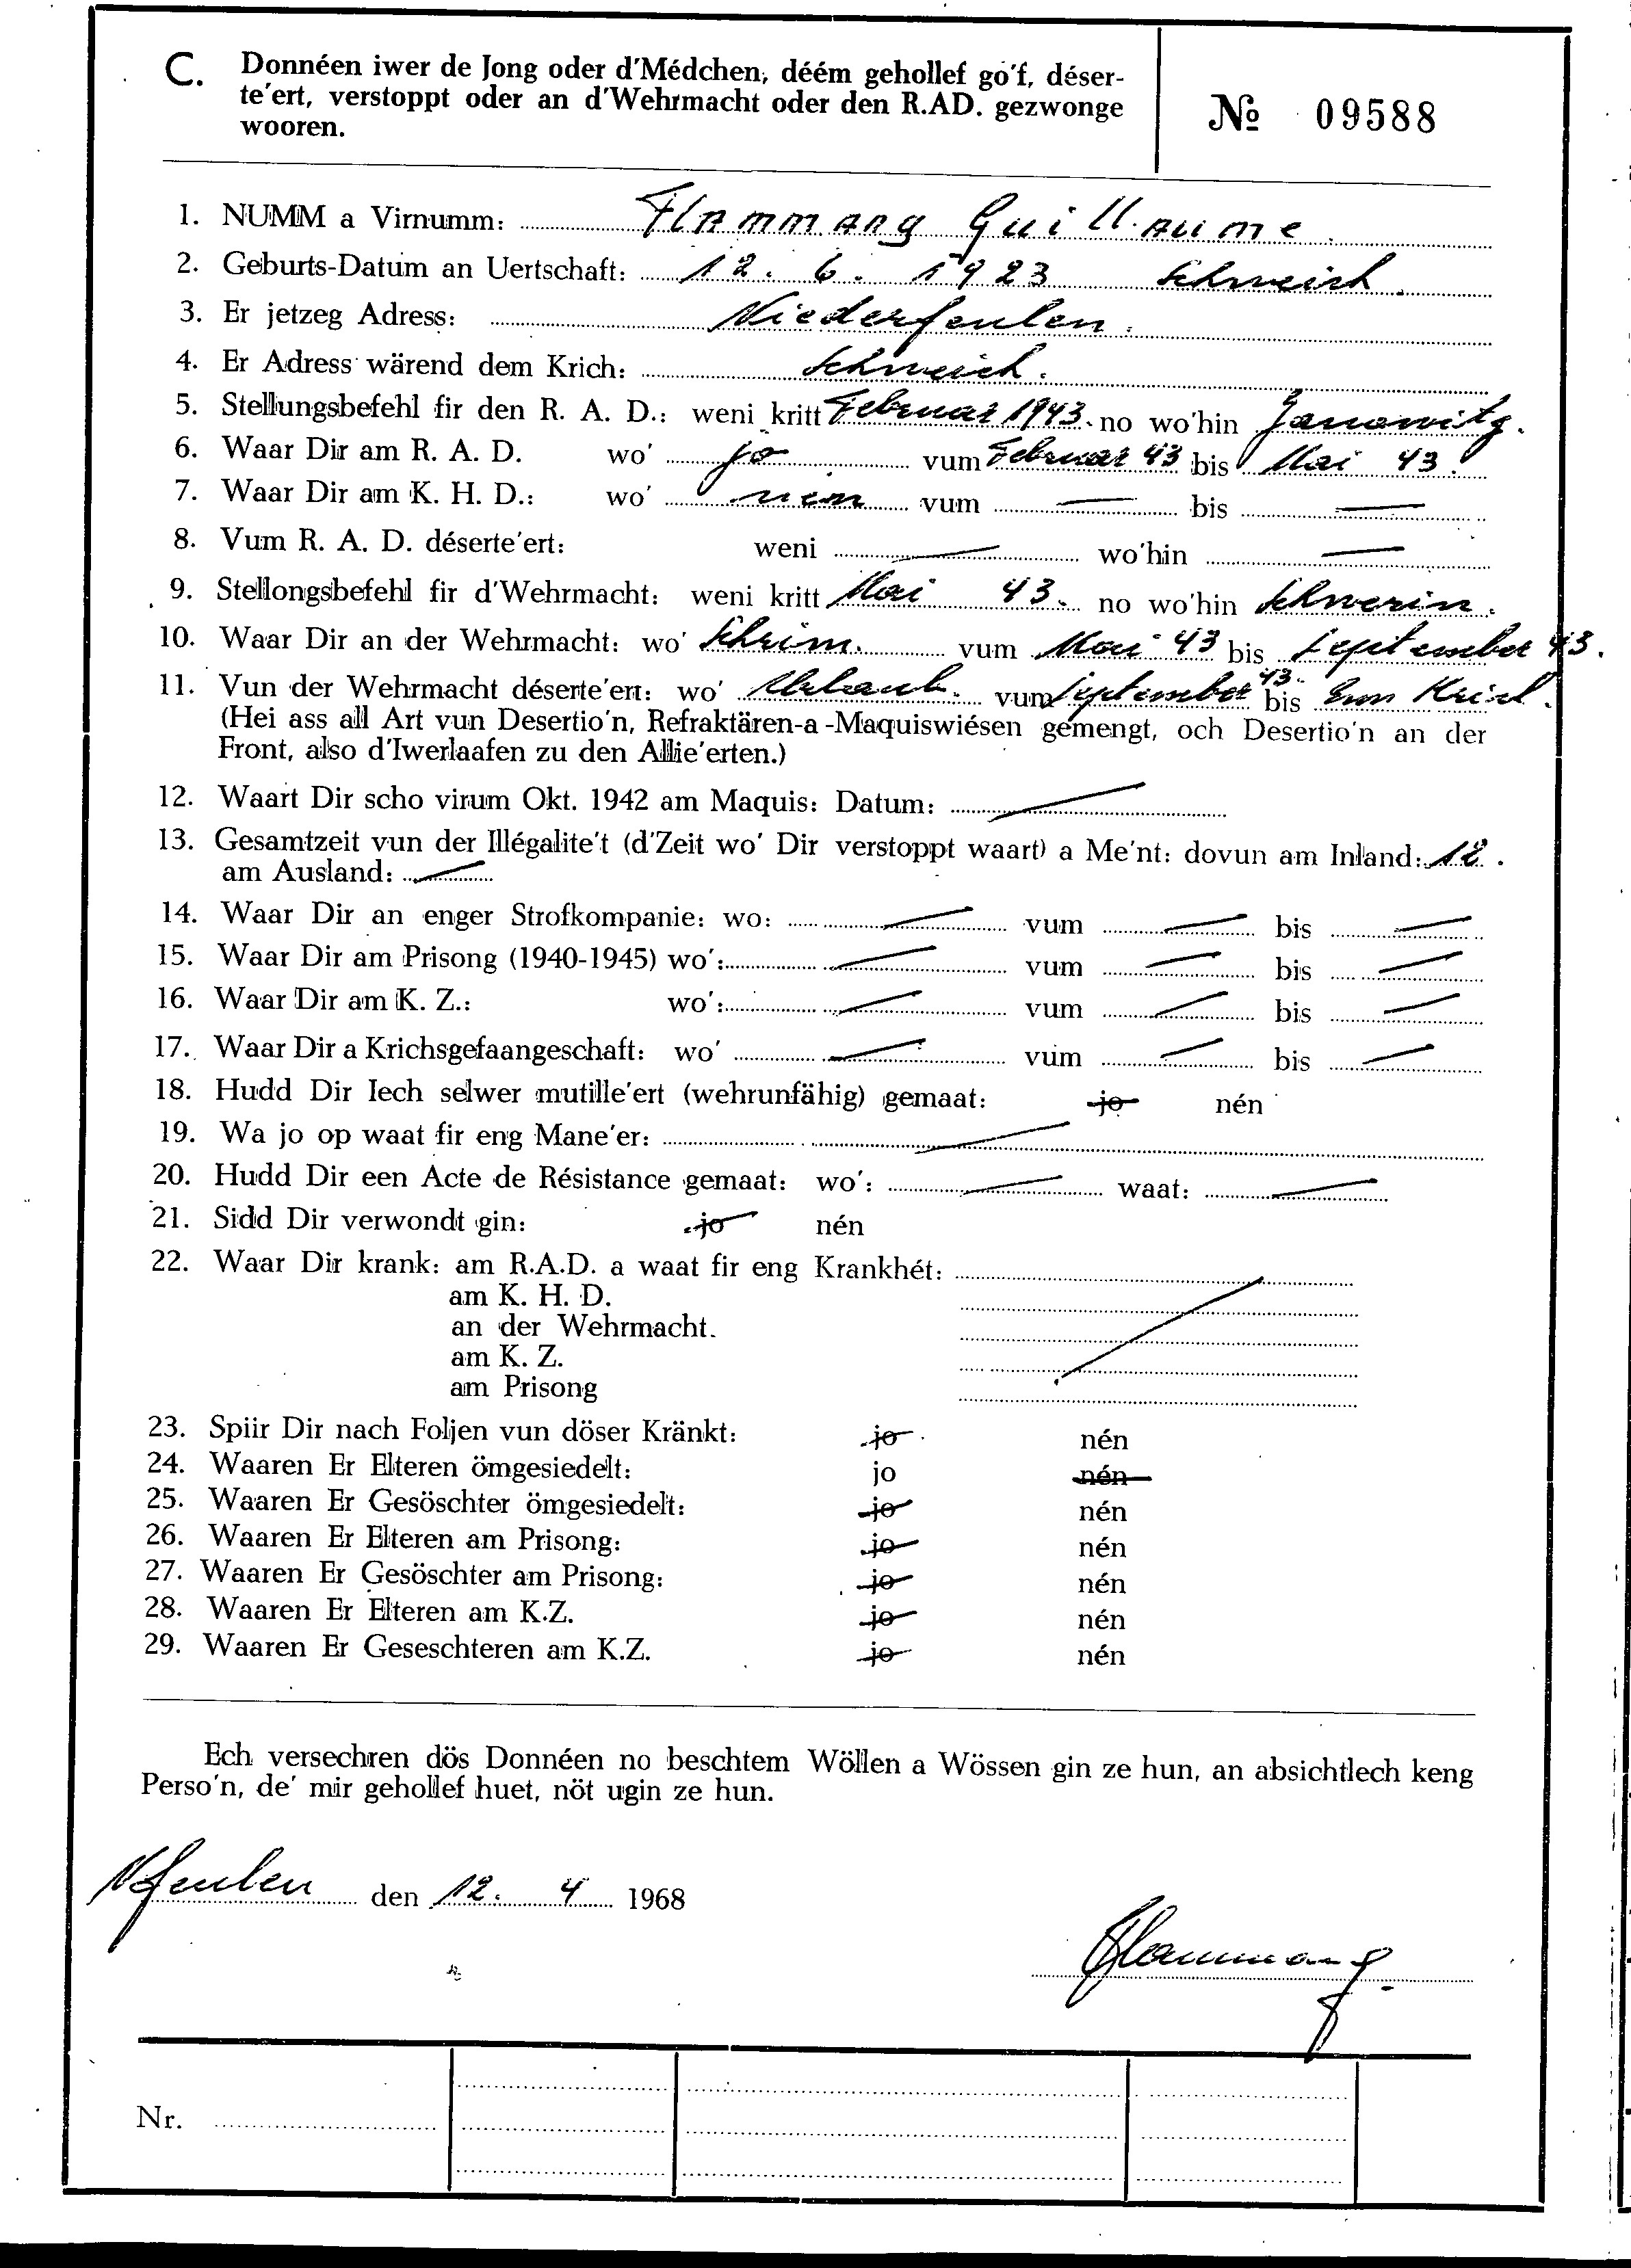 C. Donnéen iwer de Jong oder d'Médchen, déém gehollef go'f, déser-
te'ert, verstoppt oder an d'Wehrmacht oder den R.AD. gezwonge
wooren.
№ 09588
1. NUMM a Virnumm: Flammang Guillaume
2. Geburts-Datum an Uertschaft: 12. 6. 1923 Schweich.
3. Er jetzeg Adress: Niederfeulen.
4. Er Adress wärend dem Krich: Schweich.
5. Stellungsbefehl fir den R. A. D.: weni kritt Februar 1943. no wo'hin Janowitz.
6. Waar Dir am R. A. D. wo' jo vum Februar 43 bis Mai 43.
7. Waar Dir am K. H. D.: wo' nein vum — bis —
8. Vum R. A. D. déserte'ert: weni — wo'hin —
9. Stellongsbefehl fir d'Wehrmacht: weni kritt Mai 43. no wo'hin Schwerin.
10. Waar Dir an der Wehrmacht: wo' Schrim. vum Mai 43 bis September 43.
11. Vun der Wehrmacht déserte'ert: wo' Urlaub. vum September 43. bis zum Krich.
(Hei ass all Art vun Desertio'n, Refraktären-a -Maquiswiésen gemengt, och Desertio'n an der
Front, also d'Iwerlaafen zu den Allie'erten.)
12. Waart Dir scho virum Okt. 1942 am Maquis: Datum: —
13. Gesamtzeit vun der Illégalite't (d'Zeit wo' Dir verstoppt waart) a Me'nt: dovun am Inland: 12.
am Ausland: —
14. Waar Dir an enger Strofkompanie: wo: — vum — bis —
15. Waar Dir am Prisong (1940-1945) wo': — vum — bis —
16. Waar Dir am K. Z.: wo': — vum — bis —
17. Waar Dir a Krichsgefaangeschaft: wo' — vum — bis —
18. Hudd Dir Iech selwer mutille'ert (wehrunfähig) gemaat: jo nén
19. Wa jo op waat fir eng Mane'er: —
20. Hudd Dir een Acte de Résistance gemaat: wo': — waat: —
21. Sidd Dir verwondt gin: jo nén
22. Waar Dir krank: am R.A.D. a waat fir eng Krankhét:
am K. H. D.
an der Wehrmacht.
am K. Z.
am Prisong
23. Spiir Dir nach Foljen vun döser Kränkt: jo nén
24. Waaren Er Elteren ömgesiedelt: jo nén
25. Waaren Er Gesöschter ömgesiedelt: jo nén
26. Waaren Er Elteren am Prisong: jo nén
27. Waaren Er Gesöschter am Prisong: jo nén
28. Waaren Er Elteren am K.Z. jo nén
29. Waaren Er Geseschteren am K.Z. jo nén
Ech versechren dös Donnéen no beschtem Wöllen a Wössen gin ze hun, an absichtlech keng
Perso'n, de' mir gehollef huet, nöt ugin ze hun.
Nfeulen den 12. 4 1968
Flammang
Nr.